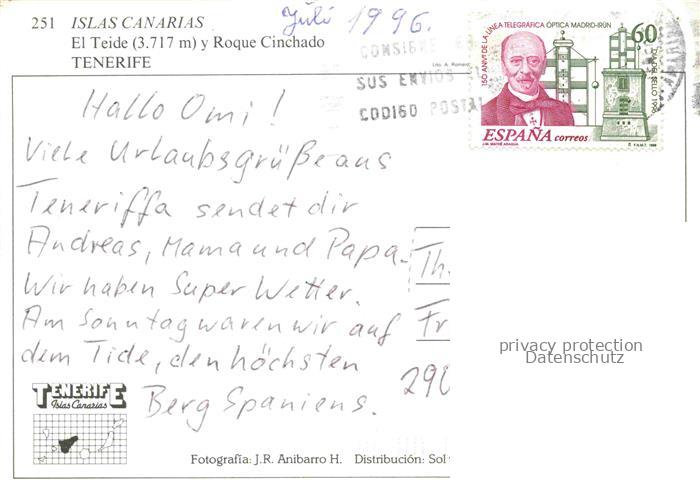 251 ISLAS CANARIAS
El Teide (3.717 m) y Roque Cinchado
TENERIFE
Juli 1996.
CONSIGNE
SUS ENVIOS
CODIGO POSTAL
150 ANIV DE LA LINEA TELEGRÁFICA ÓPTICA MADRID-IRÚN
60
DIA DEL SELLO 1996
ESPAÑA correos
Hallo Omi!
Viele Urlaubsgrüße aus
Teneriffa sendet dir
Andreas, Mama und Papa.
Wir haben Super Wetter.
Am Sonntag waren wir auf
dem Tide, den höchsten
Berg Spaniens.
Th.
Fr
290
privacy protection
Datenschutz
TENERIFE
Islas Canarias
Fotografía: J.R. Anibarro H. Distribución: Sol